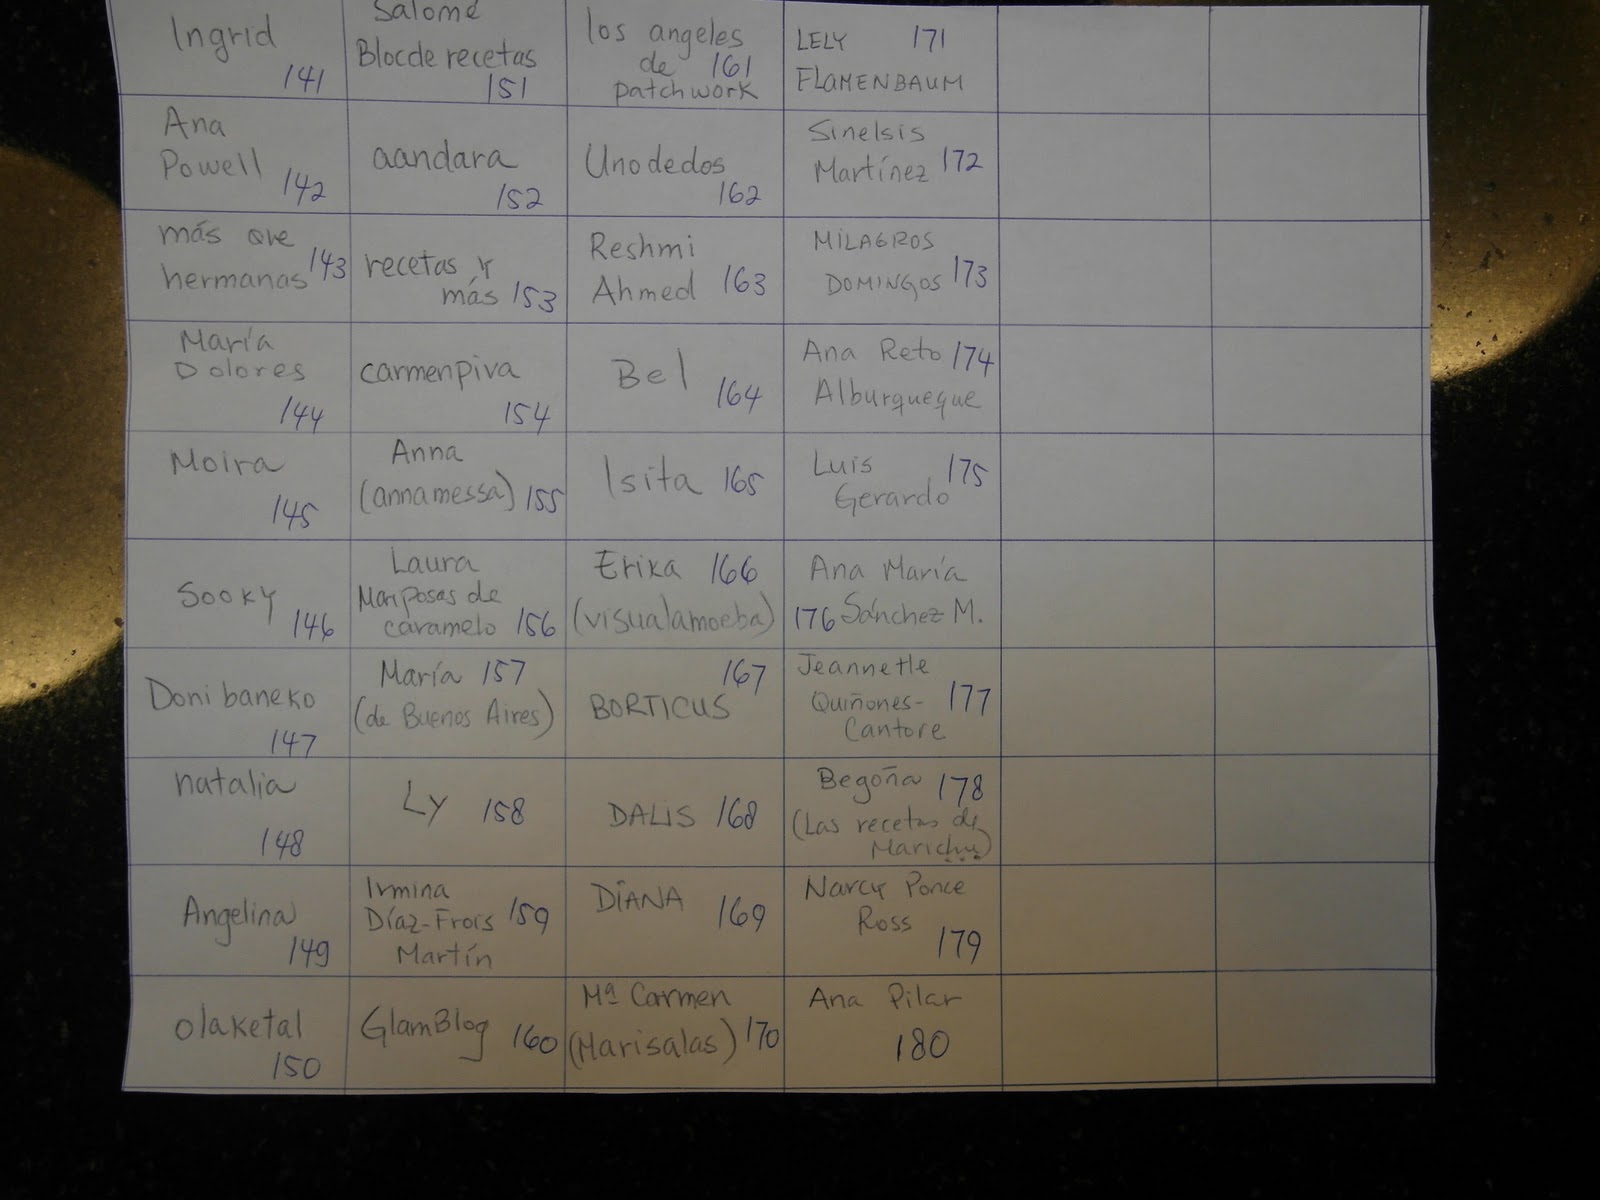 Ingrid
141
Salomé
Blocde recetas
151
los angeles
de 161
patchwork
LELY 171
FLAMENBAUM
Ana
Powell 142
aandara
152
Unodedos
162
Sinelsis
Martínez 172
más que
hermanas 143
recetas y
más 153
Reshmi
Ahmed 163
MILAGROS
DOMINGOS 173
María
Dolores
144
carmenpiva
154
Bel 164
Ana Reto 174
Alburqueque
Moira
145
Anna
(annamessa) 155
Isita 165
Luis 175
Gerardo
Sooky
146
Laura
Mariposas de
caramelo 156
Erika 166
(visualamoeba)
Ana María
176 Sánchez M.
Donibaneko
147
María 157
(de Buenos Aires)
167
BORTICUS
Jeannetle
Quiñones- 177
Cantore
natalia
148
Ly 158
DALIS 168
Begoña 178
(Las recetas de
Marichu)
Angelina
149
Irmina
Díaz-Frois 159
Martín
DIANA 169
Narcy Ponce
Ross
179
olaketal
150
GlamBlog 160
Mª Carmen
(Marisalas) 170
Ana Pilar
180